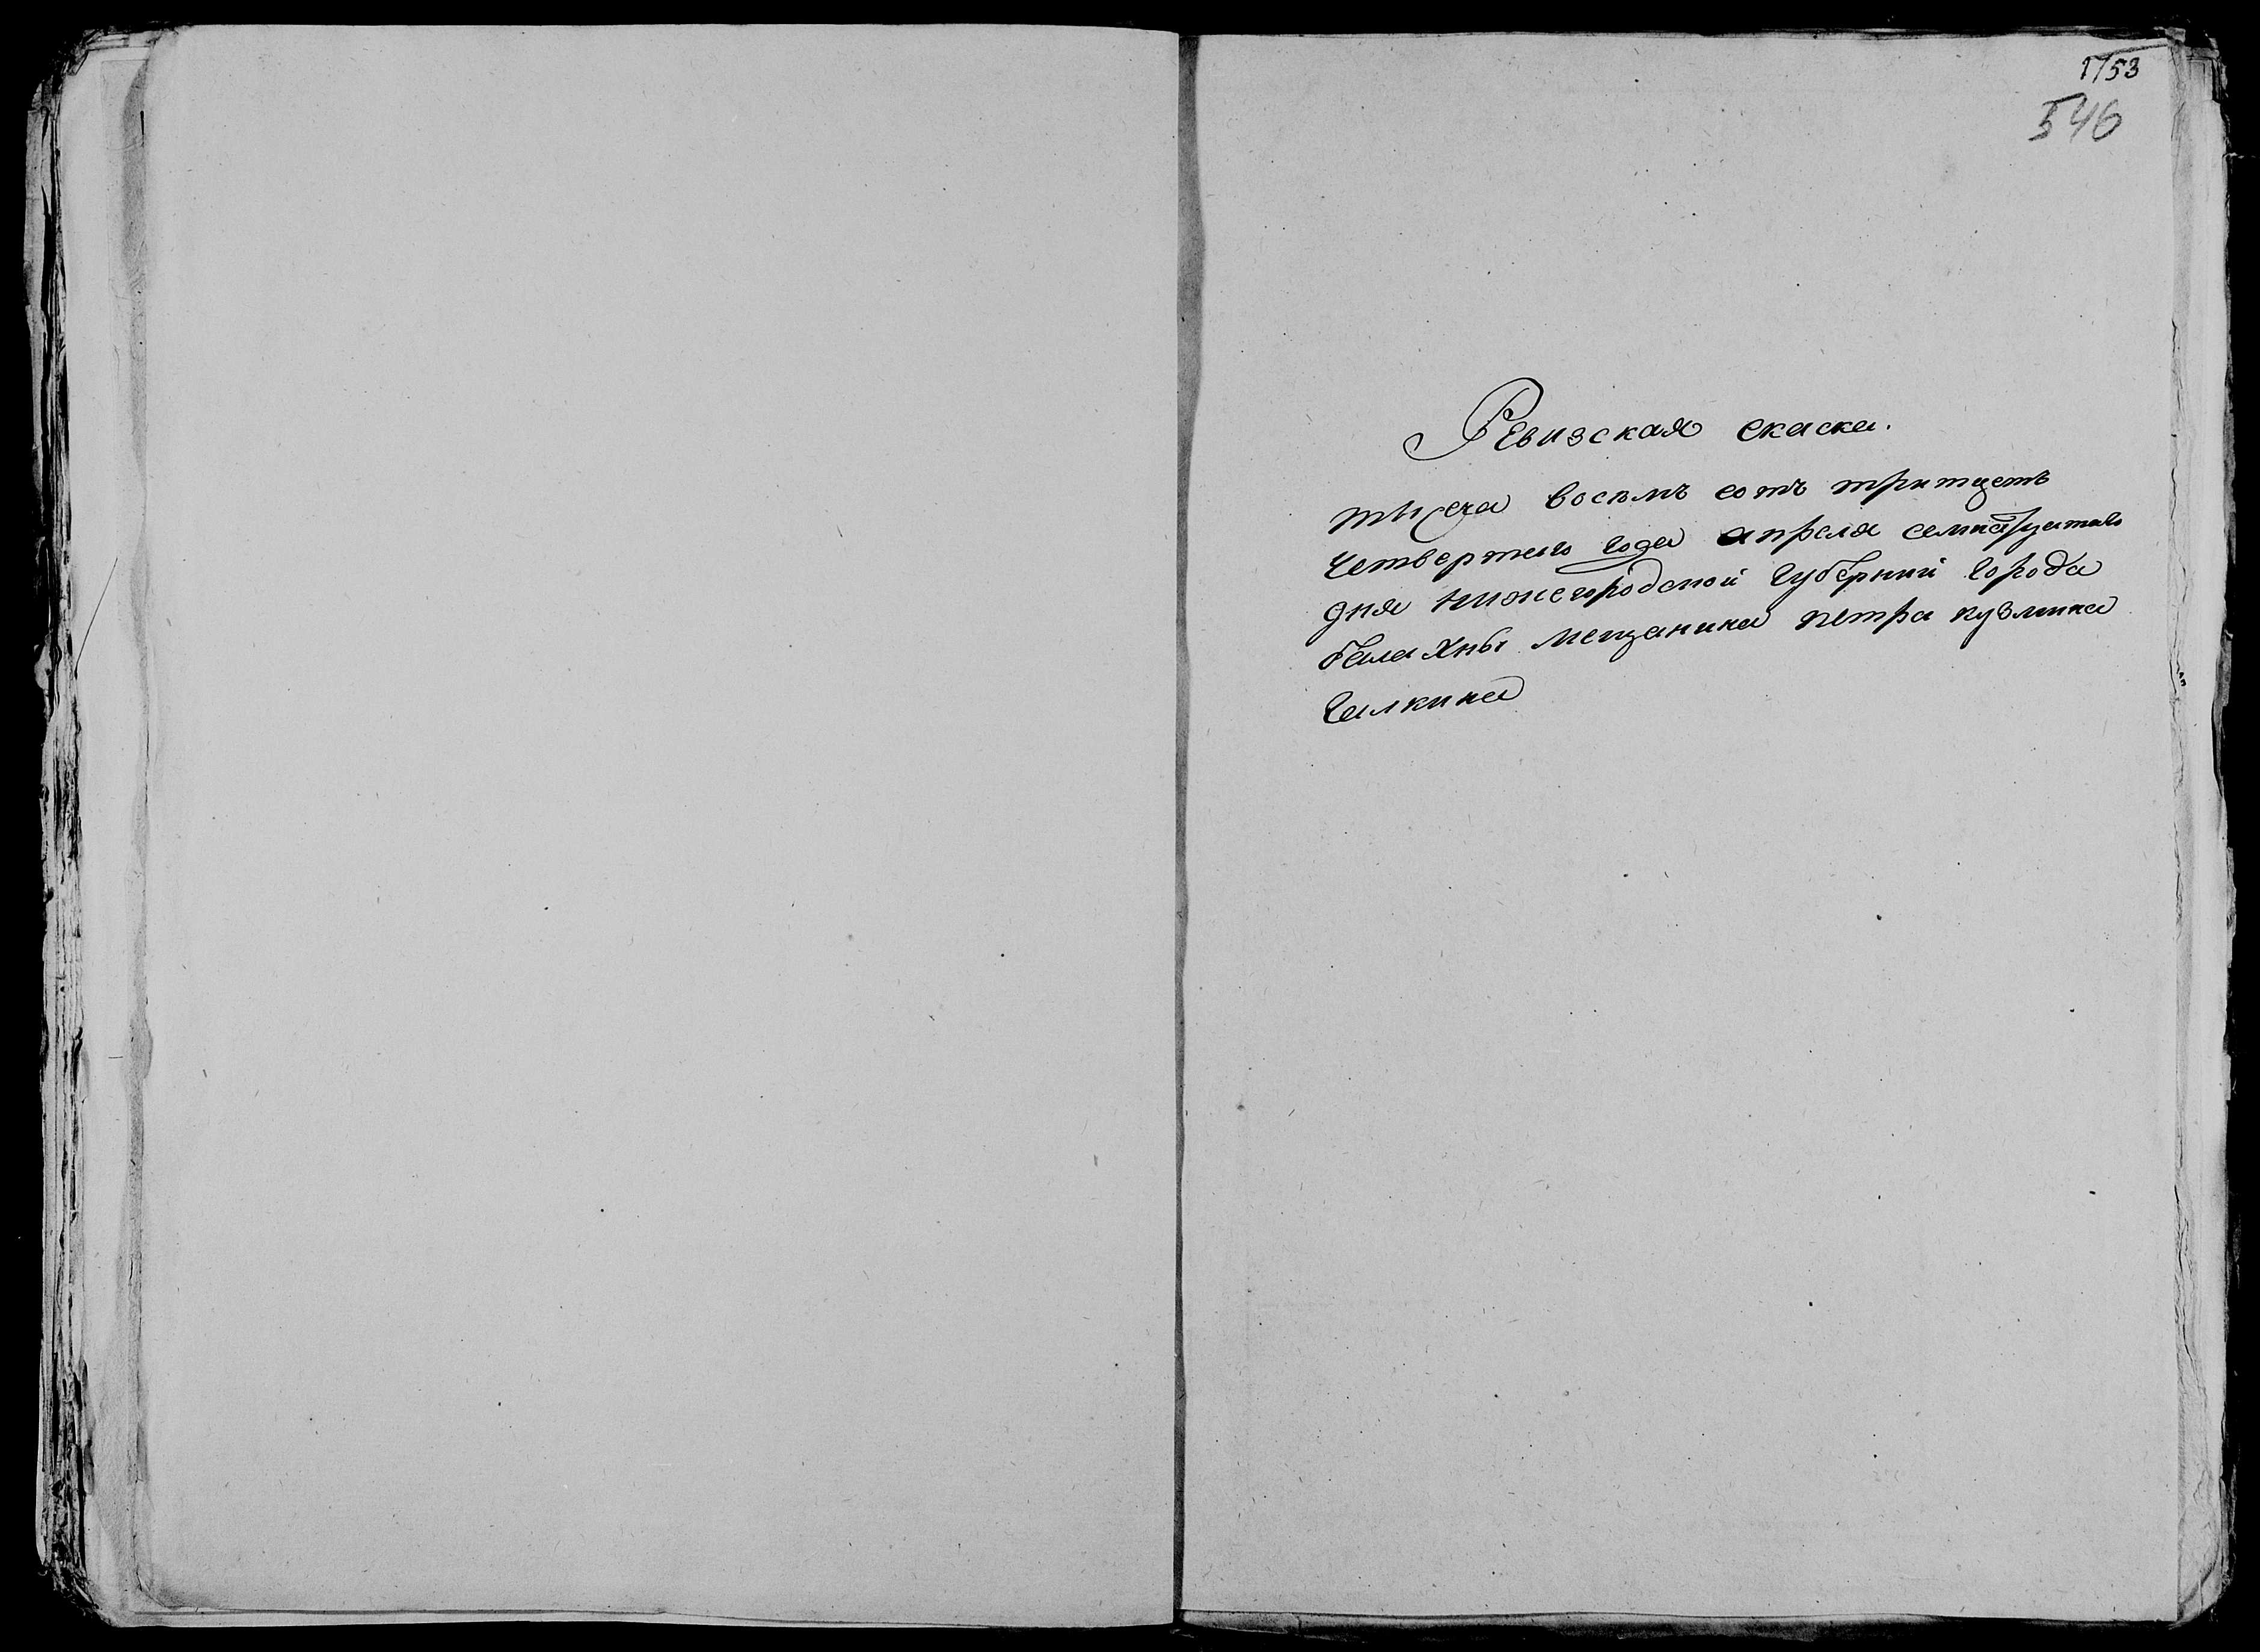 1753
546
Ревизская скаска.
тысеча восемь сотъ тритцеть
четвертаго года апреля семнатцатаго
дня нижегородской губернии города
балахны мещанина петра кузмина
Галкина